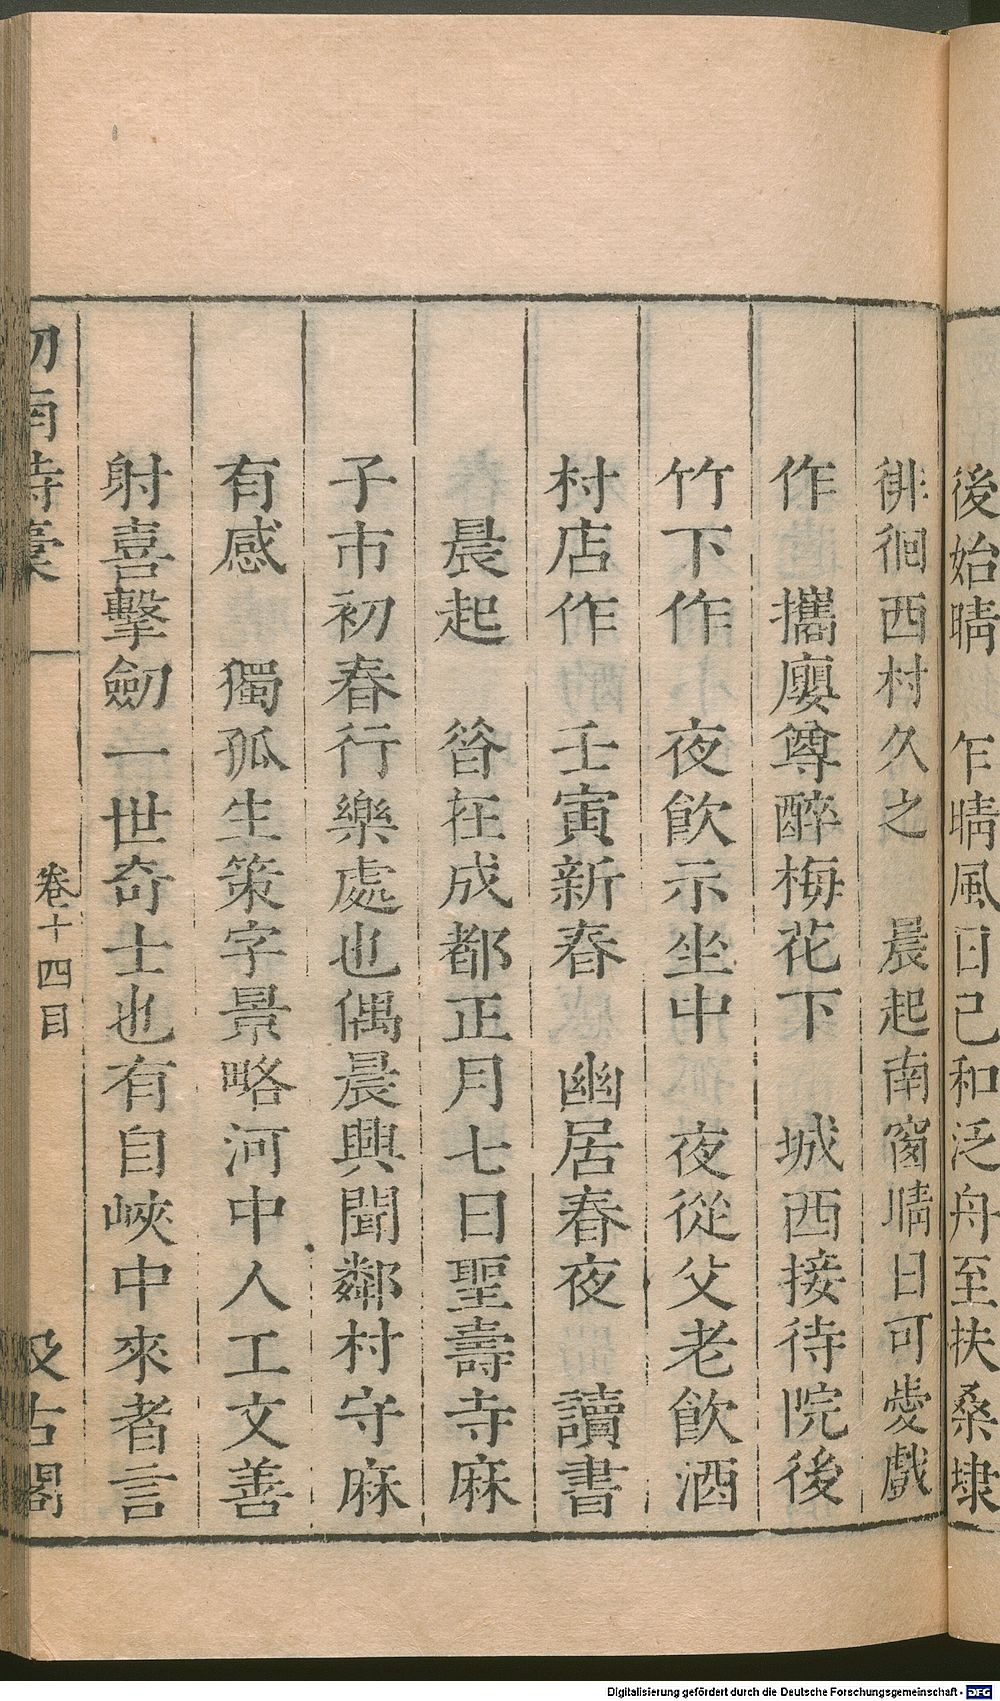 後始晴　乍晴風日已和泛舟至扶桑埭
徘徊西村久之　晨起南窗晴日可愛戲
作　攜癭尊醉梅花下　城西接待院後
竹下作　夜飲示坐中　夜從父老飲酒
村店作　壬寅新春　幽居春夜　讀書
晨起　昝在成都正月七日聖壽寺麻
子市初春行樂處也偶晨興聞鄰村守麻
有感　獨孤生策字景略河中人工文善
射喜擊劒一世奇士也有自峽中來者言
劒南詩稾　卷十四目　汲古閣
Digitalisierung gefördert durch die Deutsche Forschungsgemeinschaft - DFG